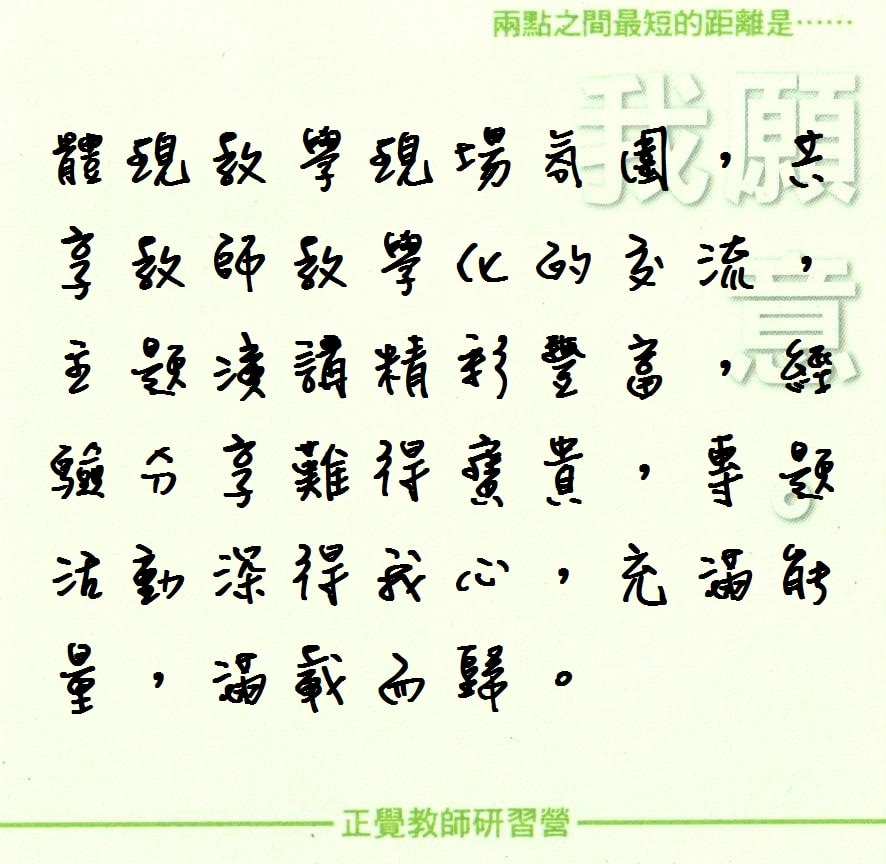 兩點之間最短的距離是⋯⋯
我願
意。
體現教學現場氛圍，共
享教師教學化的交流，
主題演講精彩豐富，經
驗分享難得寶貴，專題
活動深得我心，充滿能
量，滿載而歸。
正覺教師研習營